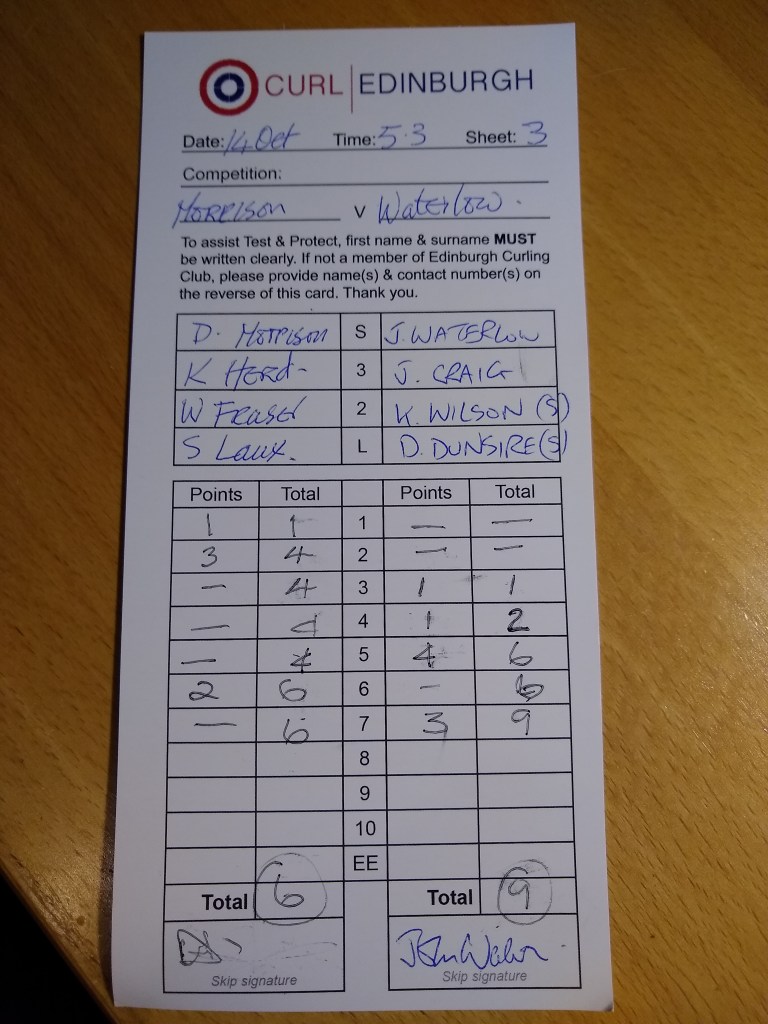 CURL | EDINBURGH
Date: 14 Oct Time: 5.3 Sheet: 3
Competition:
MORRISON v Waterlow.
To assist Test & Protect, first name & surname MUST
be written clearly. If not a member of Edinburgh Curling
Club, please provide name(s) & contact number(s) on
the reverse of this card. Thank you.
D. MORRISON S J. WATERLOW
K HERD- 3 J. CRAIG
W FRASER 2 K. WILSON (S)
S Laux. L D. DUNSIRE (S)
Points Total Points Total
1 1 1 — —
3 4 2 — —
— 4 3 1 1
— 4 4 1 2
— 4 5 4 6
2 6 6 — 6
— 6 7 3 9
8
9
10
EE
Total 6 Total 9
Skip signature Skip signature